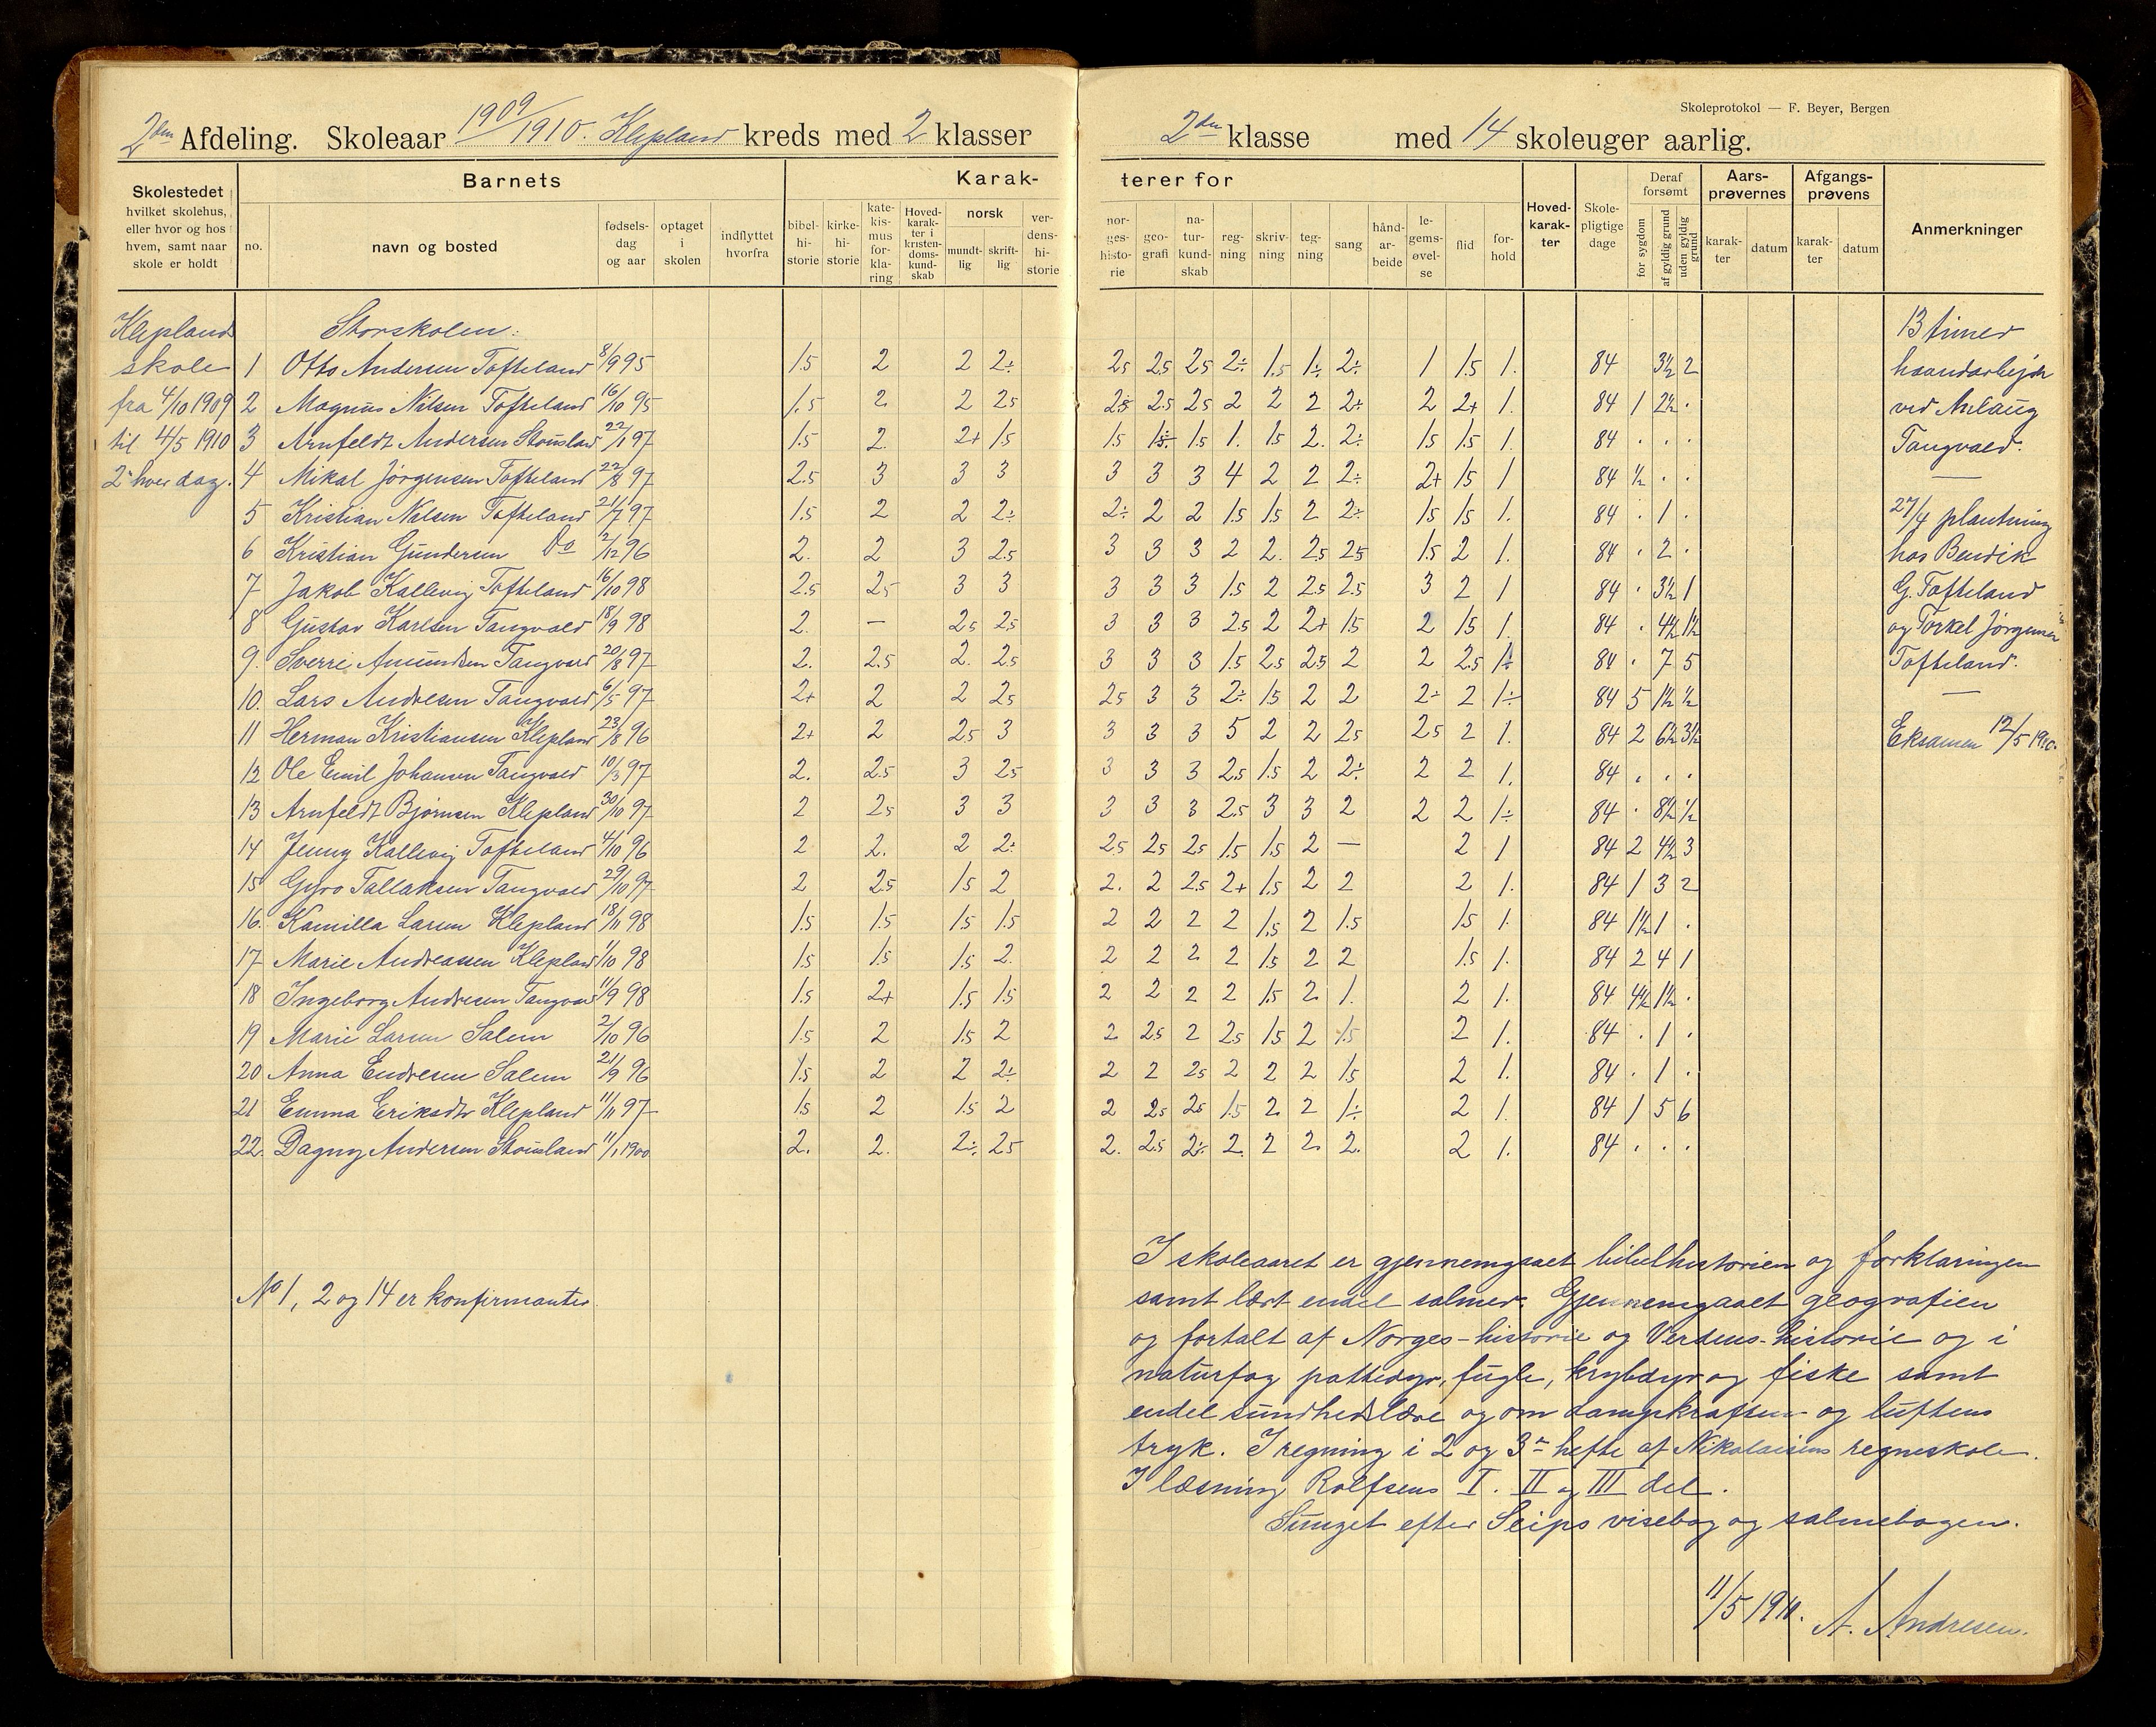 Skoleprotokol — F. Beyer, Bergen
2den Afdeling. Skoleaar 1909/1910. Klepland kreds med 2 klasser
2den klasse med 14 skoleuger aarlig.
Skolestedet hvilket skolehus, eller hvor og hos hvem, samt naar skole er holdt
Barnets
no. navn og bosted fødselsdag og aar optaget i skolen indflyttet hvorfra
Karakterer for
bibelhistorie kirkehistorie katekismus forklaring Hovedkarakter i kristendomskundskab norsk mundtlig skriftlig verdenshistorie
norgeshistorie geografi naturkundskab regning skrivning tegning sang håndarbeide legemsøvelse flid forhold
Hovedkarakter Skolepligtige dage Deraf forsømt for sygdom af gyldig grund uden gyldig grund
Aarsprøvernes karakter datum Afgangsprøvens karakter datum Anmerkninger
Klepland Storskolen. 13 timer
skole 1 Otto Andersen Tofteland 8/9 95 1.5 2 2 2÷ 2.5 2.5 2.5 2÷ 1.5 1÷ 2÷ 1 1.5 1. 84 3½ 2 haandarbejde
fra 4/10 1909 2 Magnus Nilsen Tofteland 16/10 95 1.5 2. 2 2.5 2.5 2.5 2.5 2 2 2 2÷ 2 2+ 1. 84 1 2½ . ved
til 4/5 1910 3 Arnfeldt Andersen 22/1 97 1.5 2. 2+ 1.5 1.5 1.5 1. 1.5 2. 2÷ 1.5 1.5 1. 84 . . . Tangvald.
2. hver dag. 4 Mikal Jørgensen Tofteland 22/8 97 2.5 3 3 3 3 3 3 4 2 2 2÷ 2+ 1.5 1 84 ½ . . —
5 Kristian Nilsen Tofteland 21/7 97 1.5 2 2 2÷ 2÷ 2 2 1.5 1.5 2 2÷ 1.5 1.5 1. 84 . 1 . 27/4 plantning
6 Kristian Gundersen Do 2/12 96 2. 2 3 2.5 3 3 3 2 2. 2.5 2.5 1.5 2 1. 84 . 2 . hos Bendik
7 Jakob Kallevig Tofteland 16/10 98 2.5 2.5 3 3 3 3 3 1.5 2 2.5 2.5 3 2 1 84 . 3½ 1 G. Tofteland
8 Gustav Karlsen Tangvald 18/9 98 2. — 2.5 2.5 3 3 3 2.5 2 2+ 1.5 2 1.5 1. 84 . 4½ 1½ og Torkel Jørgensen
9. Sverre Amundsen Tangvald 20/8 97 2. 2.5 2. 2.5 3 3 3 1.5 2.5 2.5 2 2 2.5 1÷ 84 . 7 5 Tofteland.
10. Lars Andresen Tangvald 6/5 97 2+ 2 2 2.5 2.5 3 3 2÷ 1.5 2 2 2÷ 2 1÷ 84 5 1½ ½ —
11 Herman Kristiansen Klepland 23/8 96 2+ 2 2.5 3 3 3 3 5 2 2 2.5 2.5 2 1. 84 2 6½ 3½ Eksamen 12/5 1910.
12 Ole Emil Johansen Tangvald 10/3 97 2. 2.5 3 2.5 3 3 3 2.5 1.5 2 2÷ 2 2 1. 84 . . .
13 Arnfeldt Bjørnsen Klepland 30/10 97 2 2.5 3 3 3 3 3 2.5 3 3 2 2 2 1÷ 84 . 8½ ½
14 Jenny Kallevig Tofteland 4/10 96 2 2. 2 2÷ 2.5 2.5 2.5 1.5 1.5 2 — 2 1 84 2 4½ 3
15 Gyro Tallaksen Tangvald 29/10 97 2 2.5 1.5 2 2. 2 2.5 2+ 1.5 2 2 2 1. 84 1 3 2
16. Kamilla Larsen Klepland 18/11 98 1.5 1.5 1.5 1.5 2 2 2 2 1.5 2 1.5 1.5 1. 84 1½ 1 .
17 Marie Andreassen Klepland 1/10 98 1.5 1.5 1.5 2. 2 2 2 2 1.5 2 2 1.5 1. 84 2 4 1
18 Ingeborg Andresen Tangvald 11/9 98 1.5 2+ 1.5 1.5 2 2 2 2 1.5 2 1. 2 1. 84 4½ 1½ .
19 Marie Larsen Salem 2/10 96 1.5 2 1.5 2 2 2.5 2 2.5 1.5 2 1.5 2 1. 84 . 1 .
20 Anna Endresen Salem 21/9 96 1.5 2 2 2÷ 2 2 2.5 2 2 2 1.5 2 1. 84 . 1 .
21 Emma Eriksdtr Klepland 11/11 97 1.5 2 1.5 2 2 2.5 2.5 1.5 2 2 1÷ 2 1. 84 1 5 6
22. Dagny Andersen 11/1 1900 2. 2. 2÷ 2.5 2. 2.5 2÷ 2. 2 2 2. 2 1. 84 . . .
No 1, 2 og 14 er konfirmanter.
I skoleaaret er gjennemgaaet bibelhistorien og forklaringen
samt lært endel salmer. Gjennemgaaet geografien
og fortalt af Norges-historie og Verdens-historie og i
naturfag pattedyr, fugle, krybdyr og fiske samt
endel sundhedslære og om dampkraften og luftens
tryk. I regning i 2 og 3die hefte af Nikolaisens regneskole.
I læsning Rolfsens I. II og III del.
Sunget efter Seips visebog og salmebogen.
11/5 1910. A. Andresen.